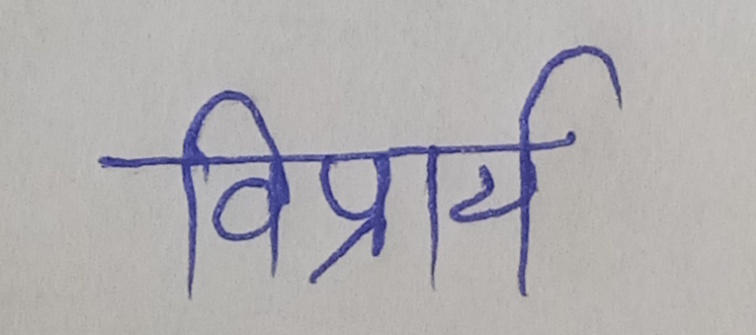 विप्रार्य